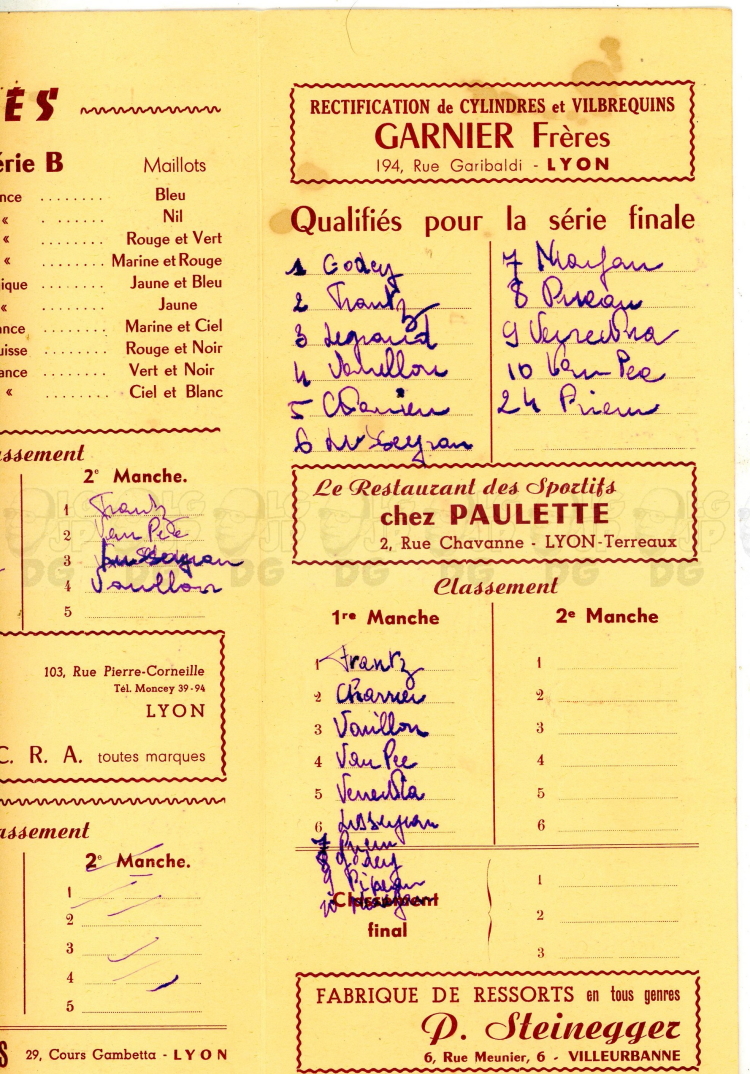 ÉS
érie B Maillots
ance ........ Bleu
« . ....... Nil
« ........ Rouge et Vert
« ........ Marine et Rouge
ique ........ Jaune et Bleu
« ........ Jaune
ance ........ Marine et Ciel
uisse ........ Rouge et Noir
ance ........ Vert et Noir
« ........ Ciel et Blanc
assement
2e Manche.
1 Frantz
2 Van Pée
3
4 Vouillon
5
103, Rue Pierre-Corneille
Tél. Moncey 39-94
LYON
C. R. A. toutes marques
assement
2e Manche.
1
2
3
4
5
S 29, Cours Gambetta - LYON
RECTIFICATION de CYLINDRES et VILBREQUINS
GARNIER Frères
194, Rue Garibaldi - LYON
Qualifiés pour la série finale
1 Godey
2 Frantz
3 Legrand
4 Vouillon
5 Charrier
6
7
8
9
10 Van Pee
24 Prieur
Le Restaurant des Sportifs
chez PAULETTE
2, Rue Chavanne - LYON-Terreaux
Classement
1re Manche
1 Frantz
2 Charrier
3 Vouillon
4 Van Pee
5
6
7 Prieur
8 Godey
9
10
2e Manche
1
2
3
4
5
6
Classement
final
1
2
3
FABRIQUE DE RESSORTS en tous genres
P. Steinegger
6, Rue Meunier, 6 - VILLEURBANNE